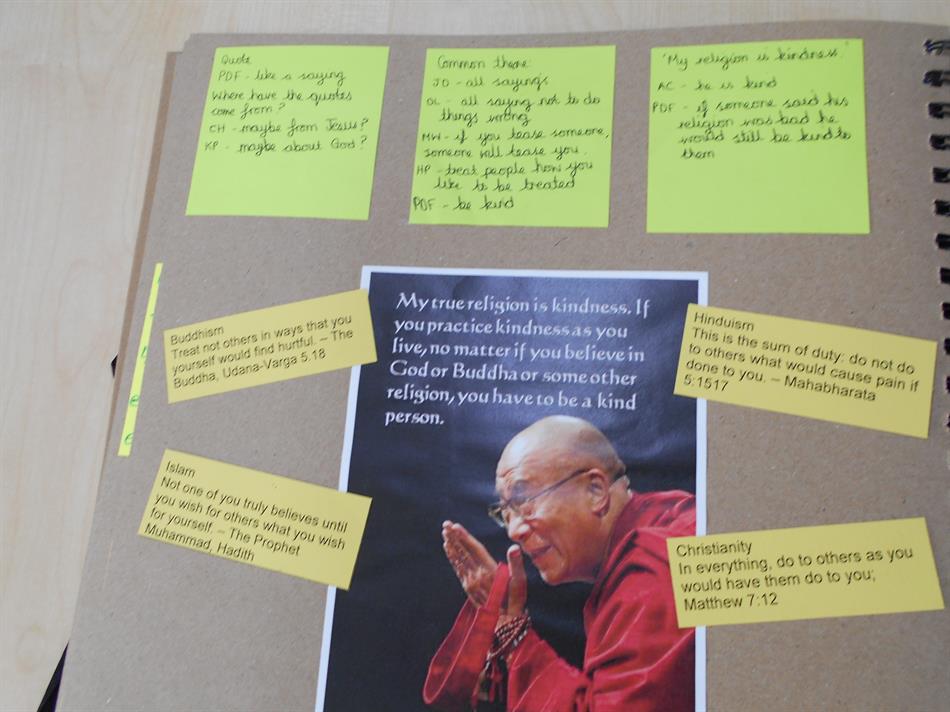 Quote
PDF - like a saying
Where have the quotes
come from?
CH - maybe from Jesus?
KP - maybe about God?
Common theme:
JD - all sayings
OL - all saying not to do
things wrong
MW - if you tease someone,
someone will tease you.
HP - treat people how you
like to be treated
PDF - be kind
'My religion is kindness.'
AC - he is kind
PDF - if someone said his
religion was bad he
would still be kind to
them
Buddhism
Treat not others in ways that you
yourself would find hurtful. – The
Buddha, Udana-Varga 5.18
My true religion is kindness. If
you practice kindness as you
live, no matter if you believe in
God or Buddha or some other
religion, you have to be a kind
person.
Hinduism
This is the sum of duty: do not do
to others what would cause pain if
done to you. – Mahabharata
5:1517
Islam
Not one of you truly believes until
you wish for others what you wish
for yourself. – The Prophet
Muhammad, Hadith
Christianity
In everything, do to others as you
would have them do to you;
Matthew 7:12